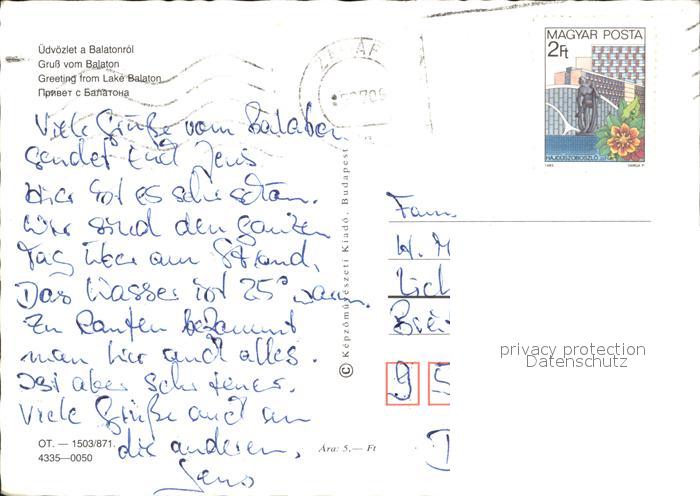 Üdvözlet a Balatonról
Gruß vom Balaton
Greeting from Lake Balaton
Привет с Балатона
Viele Grüße vom Balaton
sendet Euch Jens.
Hier ist es sehr schön.
Wir sind den ganzen
Tag hier am Strand.
Das Wasser ist 25° warm.
Zu kaufen bekommt
man hier auch alles.
Ist aber sehr teuer.
Viele Grüße auch an
die anderen,
Jens
OT. — 1503/871.
4335—0050
Ára: 5,— Ft
© Képzőművészeti Kiadó, Budapest
MAGYAR POSTA
2Ft
HAJDÚSZOBOSZLÓ
1983
Fam.
H. M
Lich
Brei
95
D
privacy protection
Datenschutz